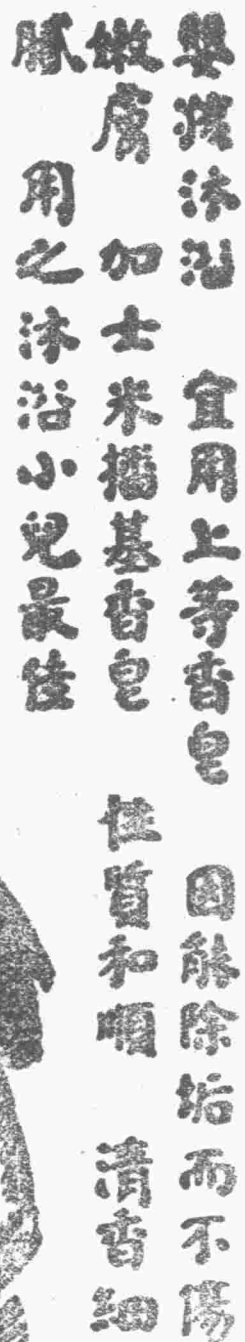 嬰孩沐浴 宜用上等香皂 因能除垢而不傷
嫩膚 加士米播基香皂 性質和順 清香細
膩 用之沐浴小兒最佳